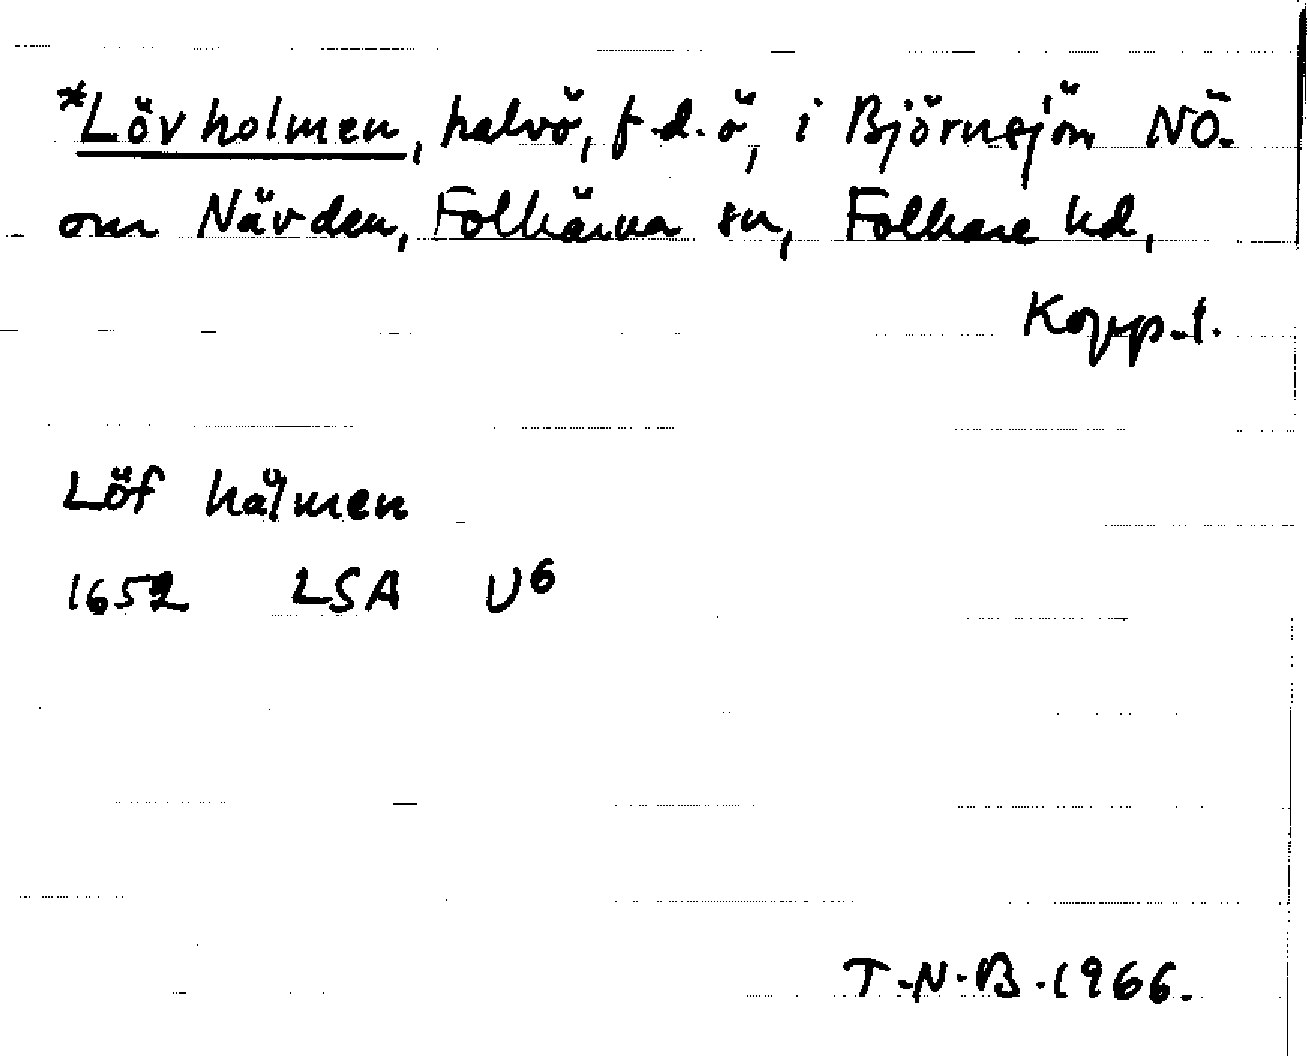 *Lövholmen, halvö, f.d. ö, i Björnsjön NÖ.
om Nävden, Folkärna sn, Folkare hd,
Kopp.l.
Löf hålmen
1652 LSA U⁶
T.N.B.1966.